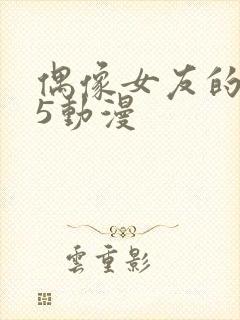 偶像女友的
5動漫
雲重影